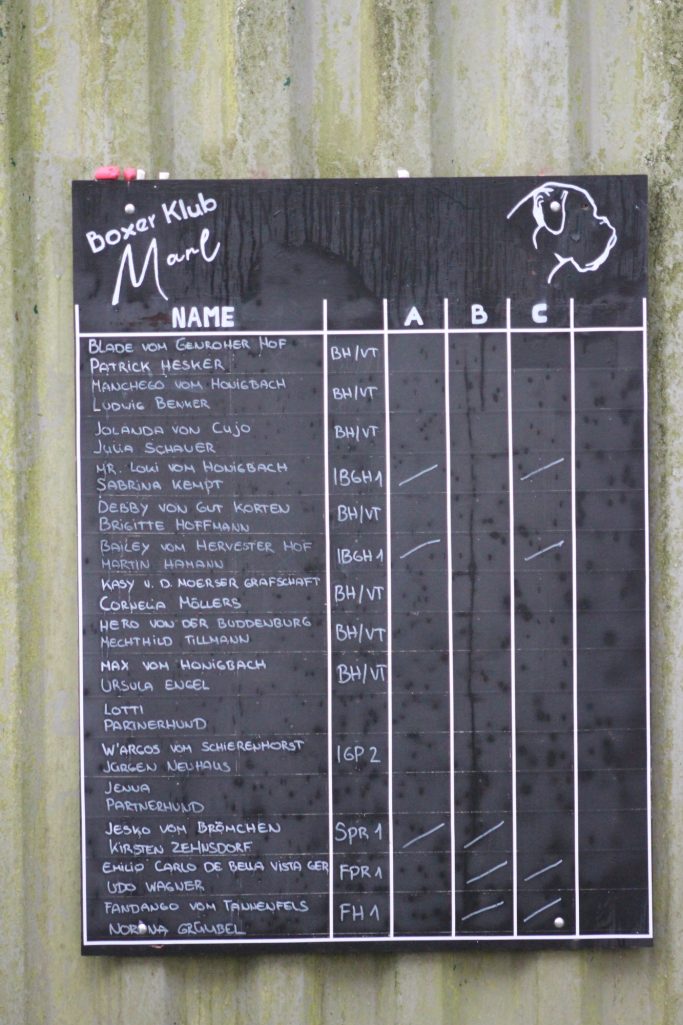 Boxer Klub
Marl
NAME A B C
BLADE VOM GENROHER HOF
PATRICK HESKER
BH/VT
MANCHEGO VOM HONIGBACH
LUDWIG BENKER
BH/VT
JOLANDA VON CUJO
JULIA SCHAUER
BH/VT
MR. LOUI VOM HONIGBACH
SABRINA KEMPT
IBGH 1
DEBBY VON GUT KORTEN
BRIGITTE HOFFMANN
BH/VT
BAILEY VOM HERVESTER HOF
MARTIN HAMANN
IBGH 1
KASY V. D. MOERSER GRAFSCHAFT
CORNELIA MÖLLERS
BH/VT
HERO VON DER BUDDENBURG
MECHTHILD TILLMANN
BH/VT
MAX VOM HONIGBACH
URSULA ENGEL
BH/VT
LOTTI
PARTNERHUND
W'ARGOS VOM SCHIERENHORST
JÜRGEN NEUHAUS
IGP 2
JENNA
PARTNERHUND
JESKO VOM BRÖMCHEN
KIRSTEN ZEHNSDORF
SPR 1
EMILIO CARLO DE BELLA VISTA GER
UDO WAGNER
FPR 1
FANDANGO VOM TANNENFELS
GRÜMBEL
FH 1